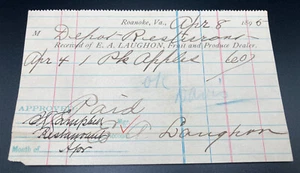 Roanoke, Va., Apr 8 1895
M Depot Restaurant
Received of E. A. LAUGHON, Fruit and Produce Dealer.
Apr 4 1 Pk Apples 60
OK
Davis
APPROVED
Paid
Restaurant
Month of Apr
Laughon